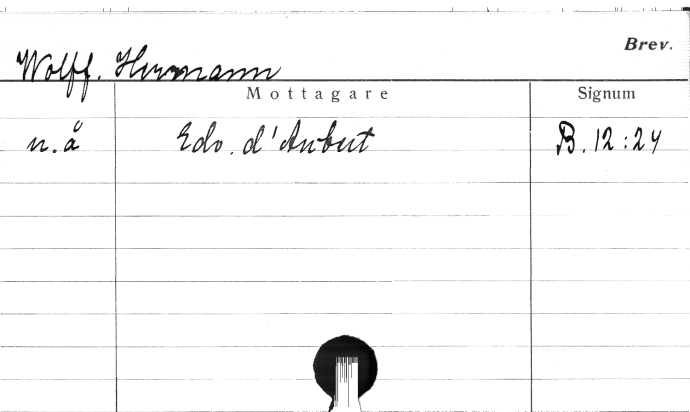 Brev.
Wolff. Hermann
Mottagare Signum
n.å Edv. d'Aubert B. 12:24